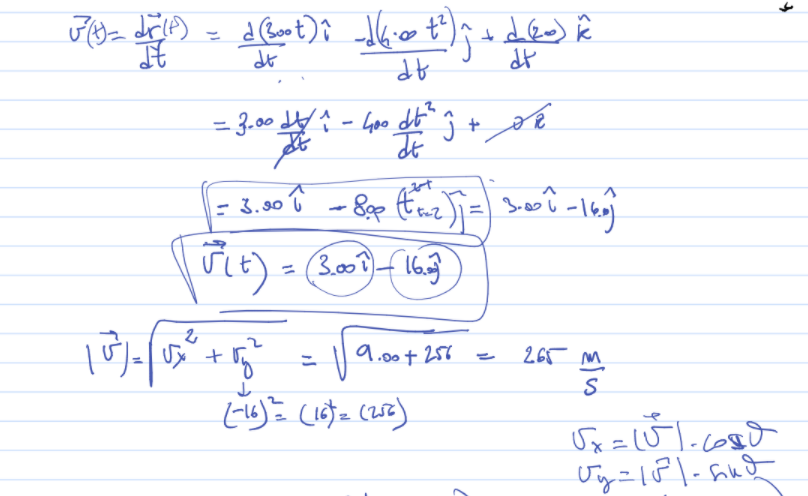 v⃗(t) = dr⃗(t)/dt = d(3.00t)/dt î - d(4.00 t²)/dt ĵ + d(2.00)/dt k̂
= 3.00 dt/dt î - 4.00 dt²/dt ĵ + 0 k̂
= 3.00 î - 8.00 (t t=2) ĵ = 3.00 î - 16.0 ĵ
v⃗(t) = 3.00 î - 16.0 ĵ
|v⃗| = √(vx² + vy²) = √(9.00 + 256) = 265 m/s
(-16)² = (16)² = (256)
vx = |v⃗| . cos θ
vy = |v⃗| . sin θ